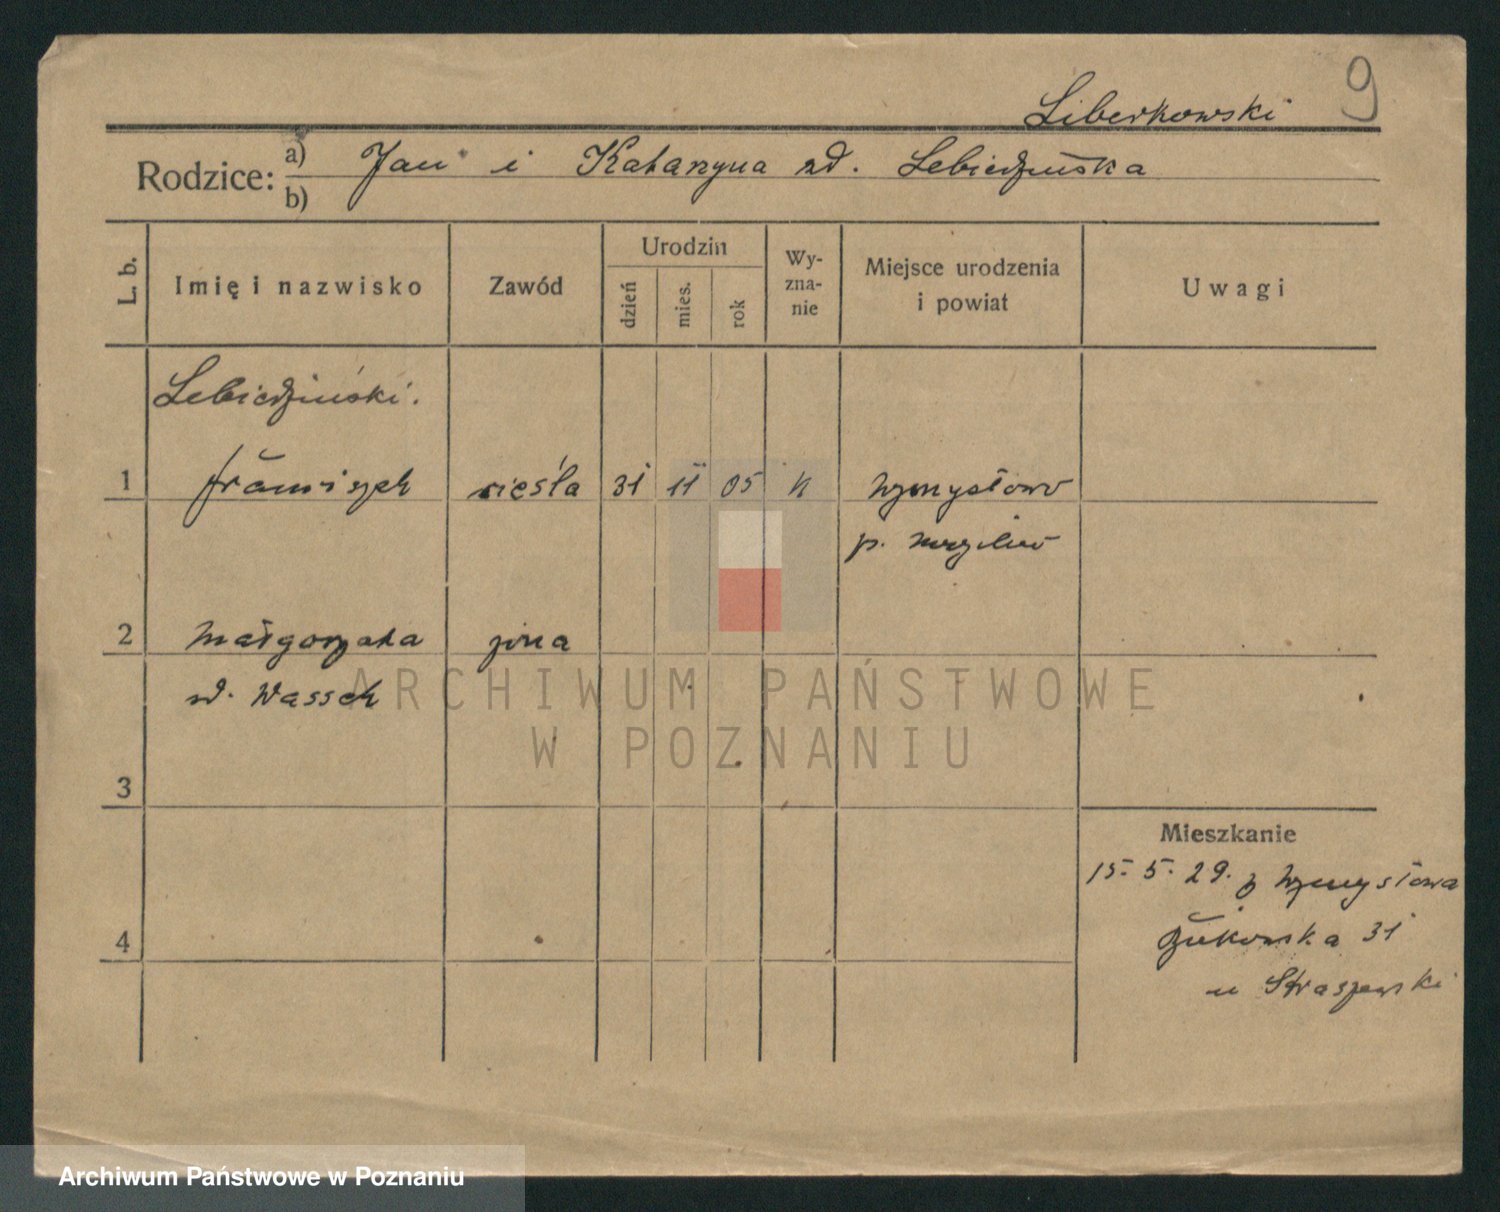 9
Liberkowski
Rodzice: a) Jan i Katarzyna zd. Lebiedzińska
b)
L. b.
Imię i nazwisko
Zawód
Urodzin
dzień
mies.
rok
Wy-
zna-
nie
Miejsce urodzenia
i powiat
Uwagi
Lebiedziński.
1 Franciszek cieśla 31 11 05 k Wymysłowo
p.
2 Małgorzata żona
zd. Wassek
3
4
Mieszkanie
15. 5. 29. z Wymysłowa
Żukowska 31
u Straszewski
ARCHIWUM PAŃSTWOWE
W POZNANIU
Archiwum Państwowe w Poznaniu